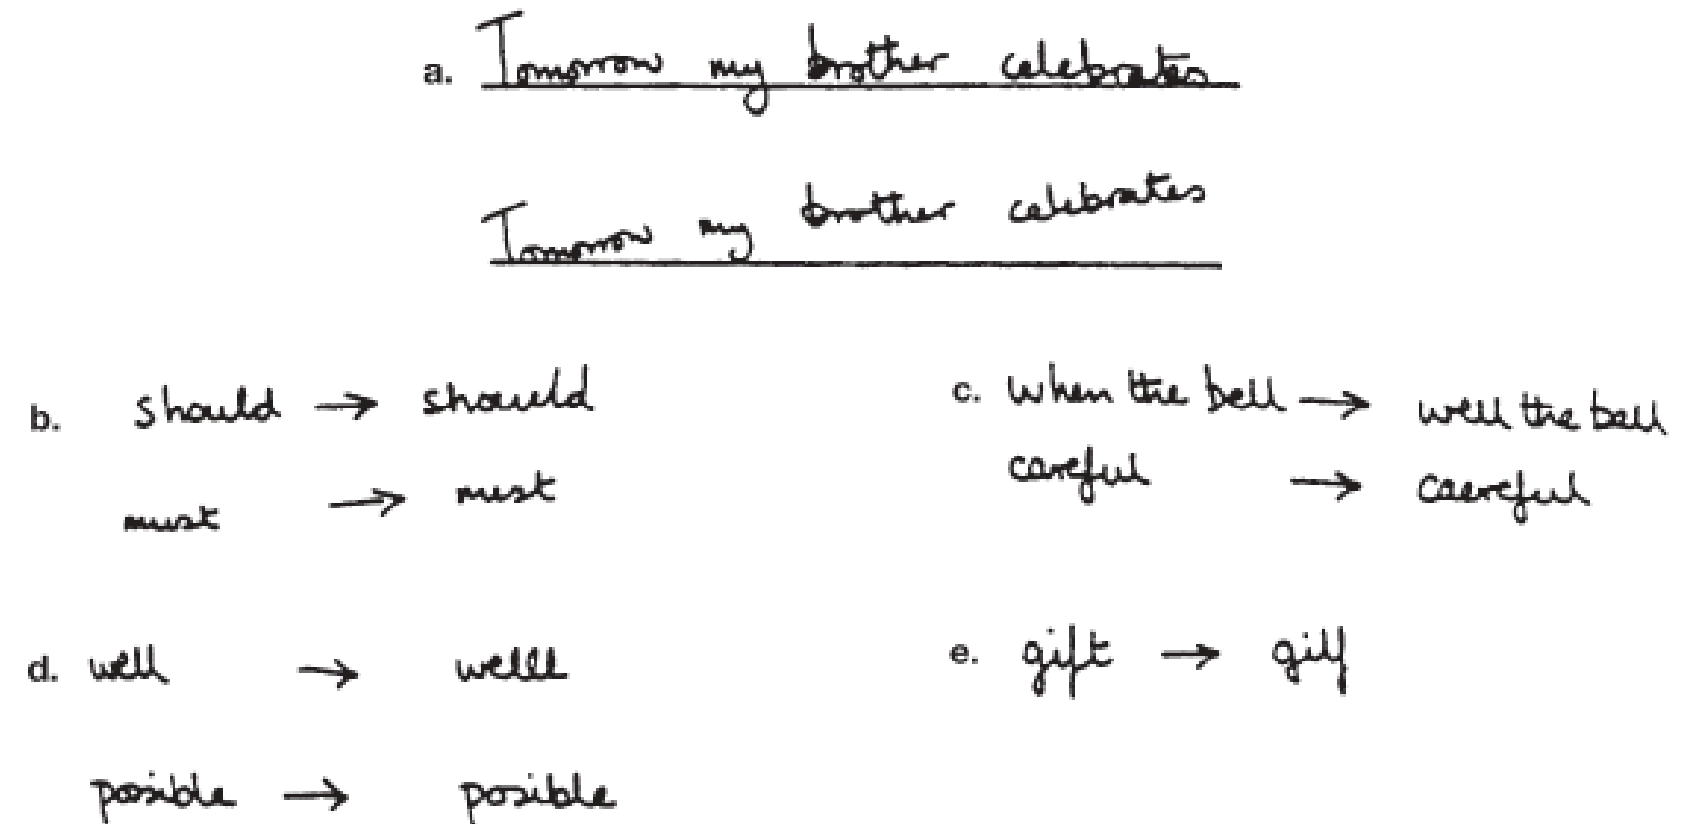 a. Tomorrow my brother celebrates
Tomorrow my brother celebrates
b. should → shauld
must → mest
c. when the bell → well the bell
careful → caereful
d. well → welll
posible → posible
e. gift → gilf